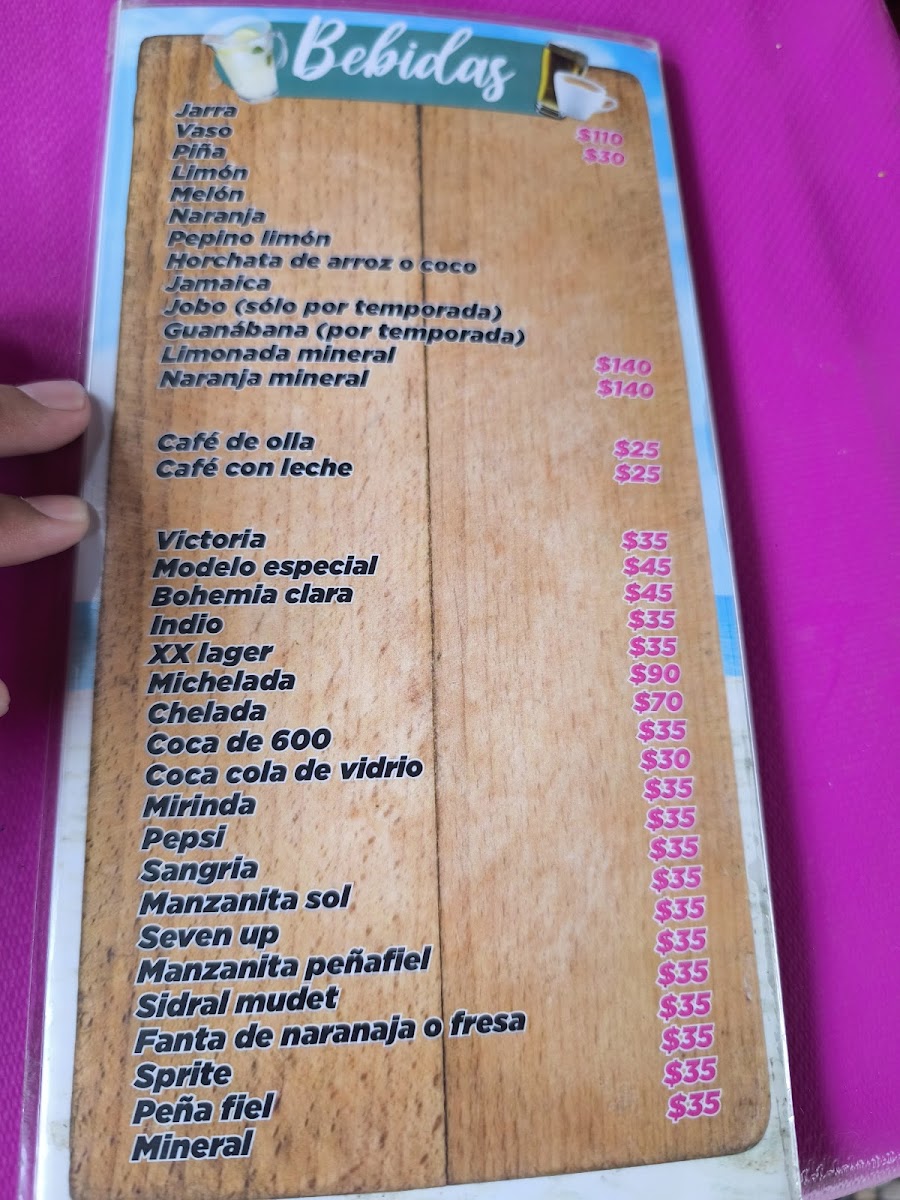 Bebidas
Jarra $110
Vaso $30
Piña
Limón
Melón
Naranja
Pepino limón
Horchata de arroz o coco
Jamaica
Jobo (sólo por temporada)
Guanábana (por temporada)
Limonada mineral $140
Naranja mineral $140
Café de olla $25
Café con leche $25
Victoria $35
Modelo especial $45
Bohemia clara $45
Indio $35
XX lager $35
Michelada $90
Chelada $70
Coca de 600 $35
Coca cola de vidrio $30
Mirinda $35
Pepsi $35
Sangria $35
Manzanita sol $35
Seven up $35
Manzanita peñafiel $35
Sidral mudet $35
Fanta de naranaja o fresa $35
Sprite $35
Peña fiel $35
Mineral $35